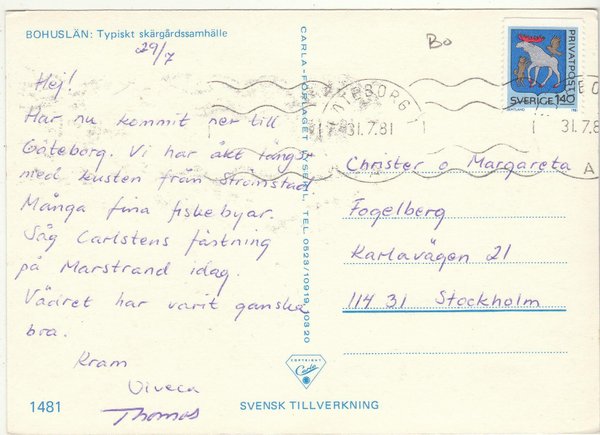 BOHUSLÄN: Typiskt skärgårdssamhälle
29/7
Hej!
Har nu kommit ner till
Göteborg. Vi har åkt längs
med kusten från Strömstad
Många fina fiskebyar.
Såg Carlstens fästning
på Marstrand idag.
Vädret har varit ganska
bra.
Kram
Viveca
Thomas
1481
CARLA-FÖRLAGET LYSEKIL, TEL 0523/10919, 10320
COPYRIGHT
Carla
SVENSK TILLVERKNING
Bo
PRIVATPOST
SVERIGE 140
GÖTEBORG 1
31.7.81
31.7.8
A
Christer o Margareta
Fogelberg
Karlavägen 21
114 31 Stockholm